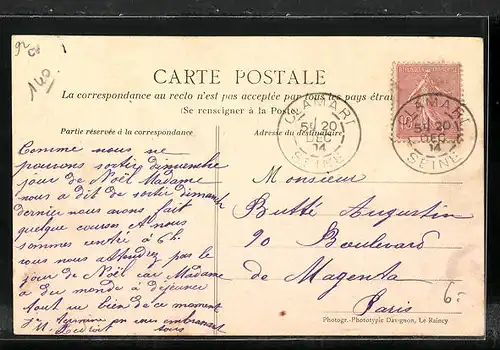 92
140
CARTE POSTALE
La correspondance au recto n'est pas acceptée par tous les pays
(Se renseigner à la Poste)
CLAMART
5E 20
DEC
14
SEINE
CLAMART
5E 20
DEC
14
SEINE
Partie réservée à la correspondance
Comme nous ne
pouvons sortir dimanche
jour de Noël Madame
nous a dit de sortir dimanche
dernier nous avons fait
quelque courses et nous
sommes rentré à 6h.
nous attendrez pas le
jour de Noël car Madame
a du monde à déjeuner
tout va bien de ce moment
vous embrassant
tous
Adresse du destinataire
Monsieur
Butté Augustin
90 Boulevard
de Magenta
Paris
6-
Photogr.-Phototypie Davignon, Le Raincy